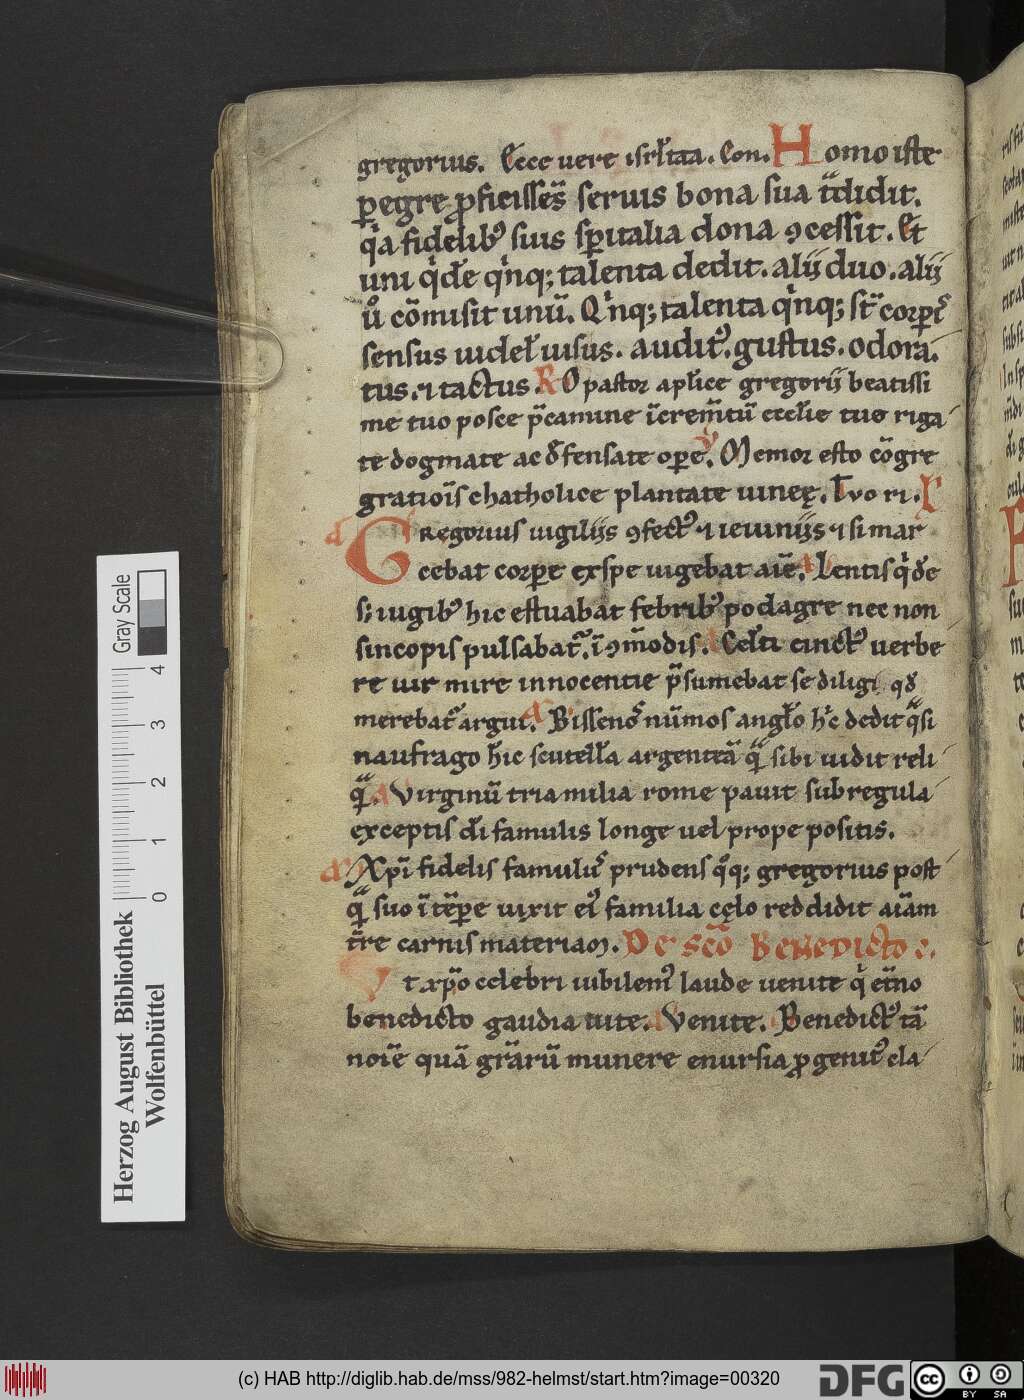 gregorius. Ecce uere isrl̄itaa. Com. Homo iste
ꝑegre ꝓficisſēs seruus bona sua t̄didit.
q̇a fidelibꝰ suis sp̄italia dona ꝯcessit. Et
uni q̇dē q̇nq; talenta dedit. alij duo. alij
u̾ cōmisit unū. Q̇nq; talenta q̇nq; st̄ corꝑis
sensus uidel̄ uisus. auditꝰ. gustus. odora
tus. ⁊ tactus. R O pastor apl̄ice gregorij beatissi
me tuo posce p̄camine īcrem̄tū eccl̄ie tue riga
te dogmate ac d̄fensate oꝑe. V Memor esto cōgre
gratiōis chatholice plantate uineę. Tuo ri. P
a GRegorius uigilijs ꝯfectꝰ ⁊ ieiuniis ⁊ si mar
cebat corꝑe exspe uigebat aīe. A Lentis q̇dē
s; iugibꝰ hic estuabat febribꝰ podagre nec non
sincopis pulsabat᷑ īꝯm̄odis. A Cel̄ti cinctꝰ uerbe
re uir mire innocentie p̄sumebat se diligi qđ
merebat᷑ argui. A Bissenos nūmos angl̄o hic dedit q̄si
naufrago hīc scutell̄a argenteā q̄ sibi uidit reli
q̄. A Virginū tria milia rome pauit sub regula
exceptis dī famulis longe uel prope positis.
A Xp̄i fidelis famulꝰ prudens q̊q; gregorius post
q̄ suo ītēꝑe uixit eiꝰ familia cęlo reddidit aīam
t̄re carnis materiam. De sc̄o Benedicto e.
Vt xp̄o celebri iubilemꝰ laude uenite q̇ et̄no
benedicto gaudia uite. A Venite. A Benedictꝰ tā
noīe quā gr̄arū munere enursia ꝓgenitꝰ cla
Gray Scale
4
3
2
1
0
Herzog August Bibliothek
Wolfenbüttel
(c) HAB http://diglib.hab.de/mss/982-helmst/start.htm?image=00320
DFG
cc
BY SA